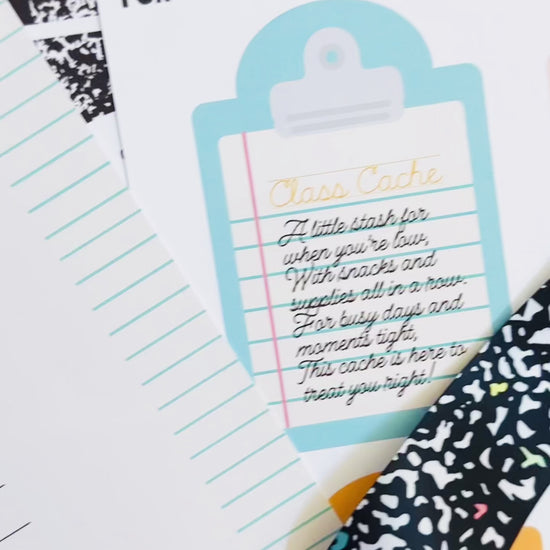 Class Cache
A little stash for
when you're low,
With snacks and
supplies all in a row.
For busy days and
moments tight,
This cache is here to
treat you right!